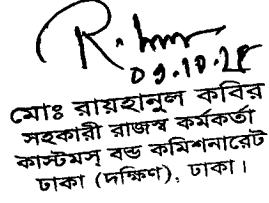 ০৭.১০.২৫
মোঃ রায়হানুল কবির
সহকারী রাজস্ব কর্মকর্তা
কাস্টমস্ বন্ড কমিশনারেট
ঢাকা (দক্ষিণ), ঢাকা।